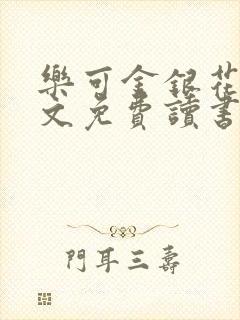 樂可金銀花
文免費讀書
門耳三壽